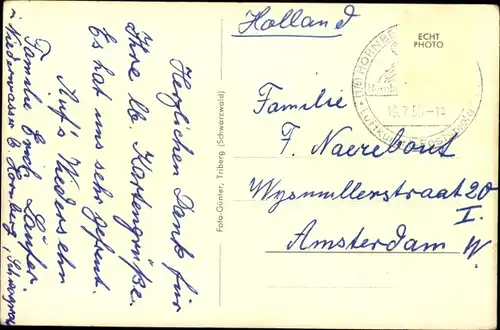 Herzlichen Dank für
Ihre lb. Kartengrüße.
Es hat uns sehr gefreut.
Auf's Wiedersehn
Familie Erich Läufer.
Niederwasser b. Hornberg, Schwarzw.
Foto-Günter, Triberg (Schwarzwald)
Holland
ECHT
PHOTO
HORNBE
Familie
F. Naerebout
Wysmullerstraat 20
I.
Amsterdam W.